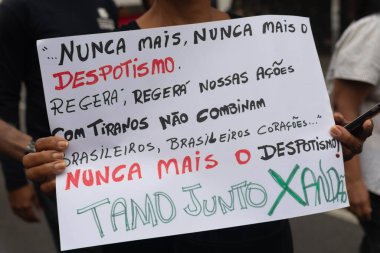 "...NUNCA MAIS, NUNCA MAIS O
DESPOTISMO.
REGERÁ, REGERÁ NOSSAS AÇÕES
COM TIRANOS NÃO COMBINAM
BRASILEIROS, BRASILEIROS CORAÇÕES..."
NUNCA MAIS O DESPOTISMO!
TAMO JUNTO XANDE